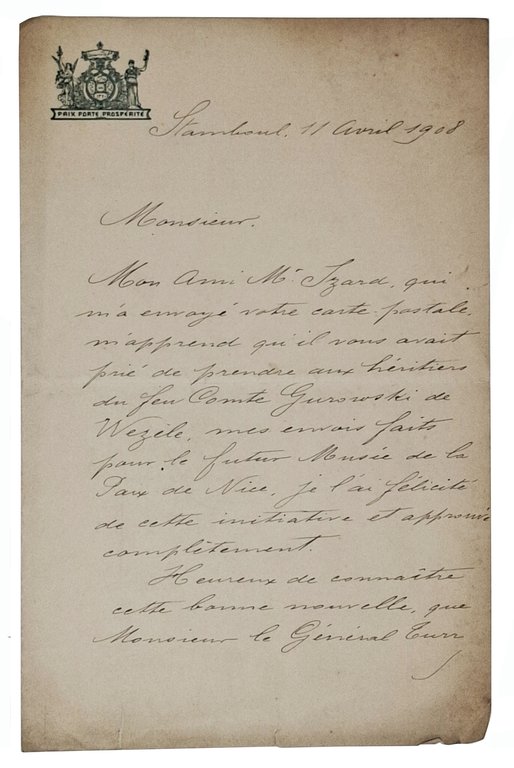 PAIX PORTE PROSPÉRITÉ
Stamboul, 11 Avril 1908
Monsieur.
Mon Ami Mr Izard, qui
m'a envoyé votre carte postale,
m'apprend qu'il vous avait
prié de prendre aux héritiers
du feu Comte Gurowski de
Wezèle, mes envois faits
pour le futur Musée de la
Paix de Nice, je l'ai félicité
de cette initiative et approuvé
complètement.
Heureux de connaître
cette bonne nouvelle, que
Monsieur le Général Turr